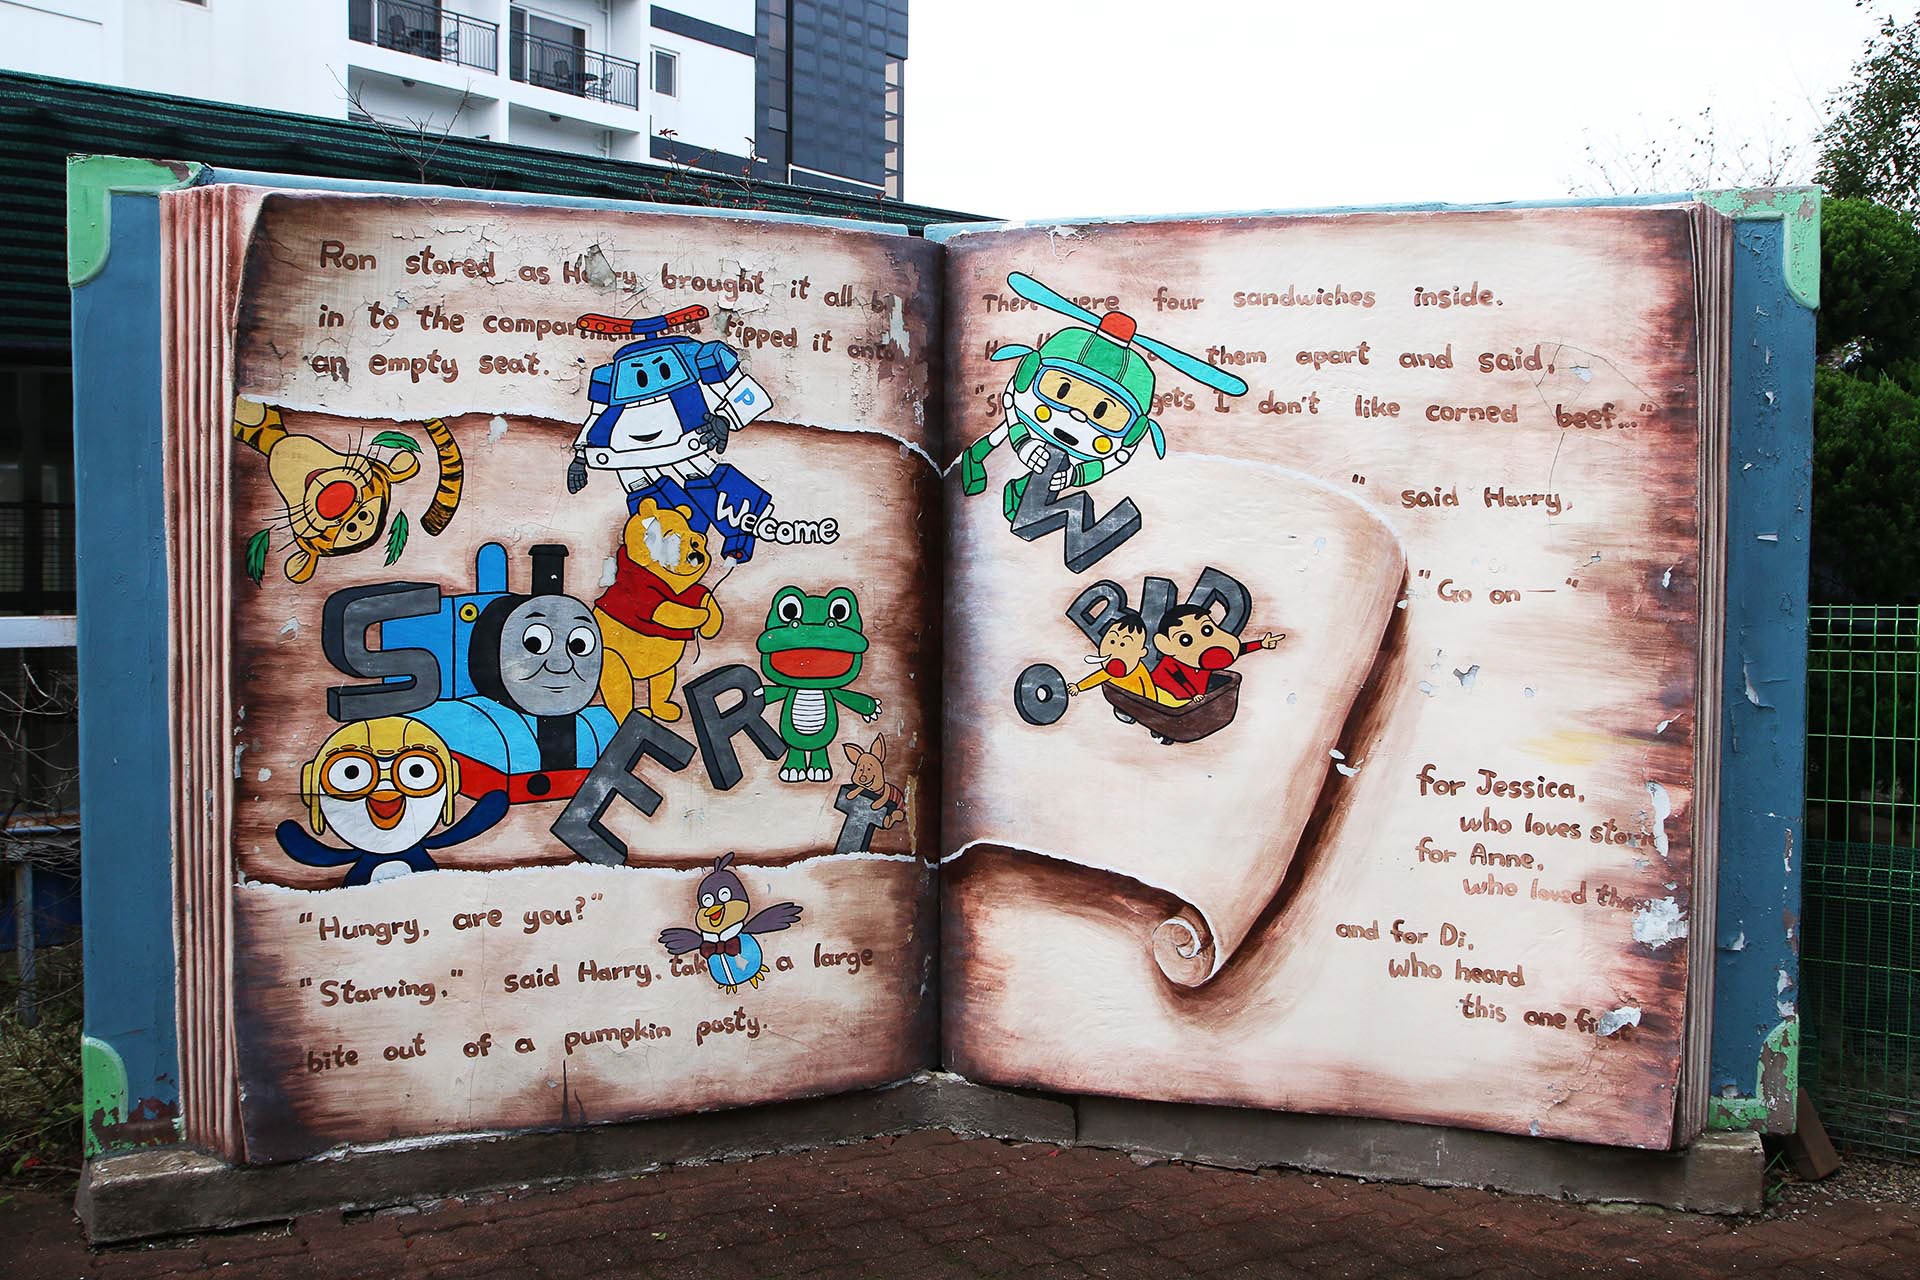 Ron stared as Harry brought it all
in to the compartment and tipped it onto
an empty seat.
P
Welcome
S
E
R
T
"Hungry, are you?"
"Starving," said Harry, a large
bite out of a pumpkin pasty.
There were four sandwiches inside.
them apart and said,
gets I don't like corned beef..."
W
O
R
L
D
" said Harry,
"Go on—"
for Jessica,
who loves
for Anne,
who loved
and for Di,
who heard
this one first.